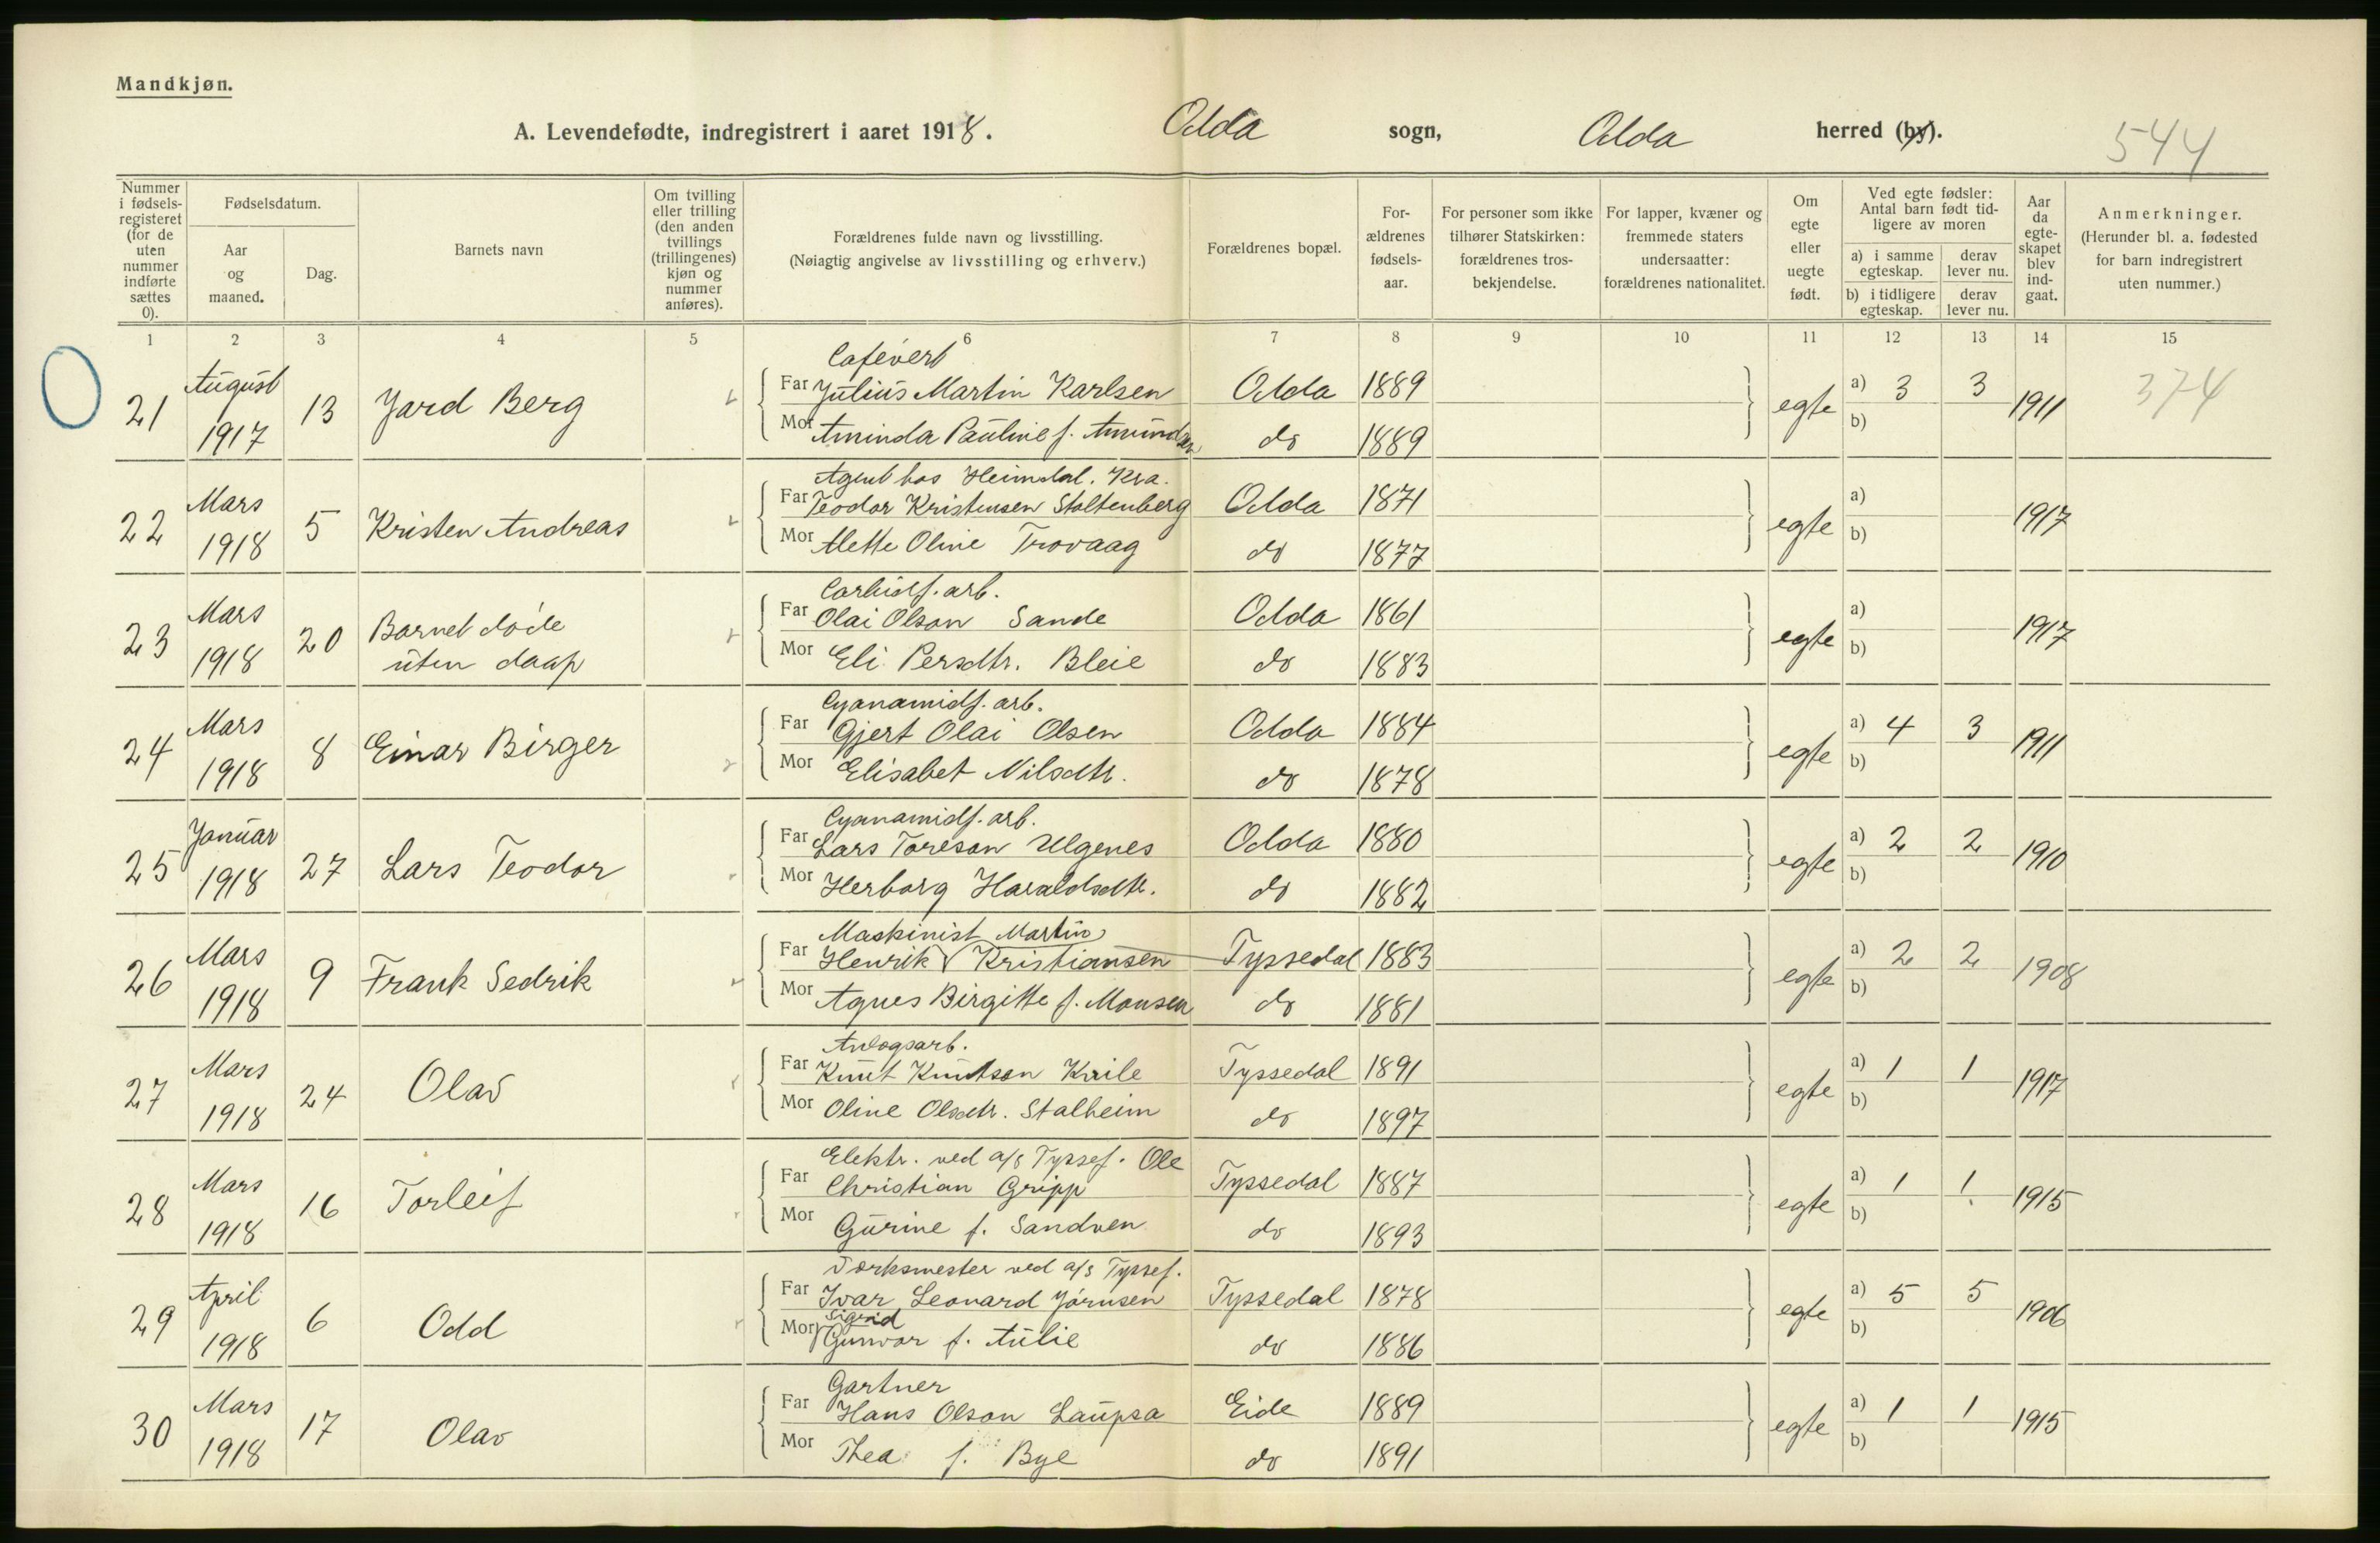 Mandkjøn.
A. Levendefødte, indregistrert i aaret 1918. Odda sogn, Odda herred (by). 544
Nummer i fødsels-registeret (for de uten nummer indførte sættes 0).
Fødselsdatum.
Aar og maaned.
Dag.
Barnets navn
Om tvilling eller trilling (den anden tvillings (trillingenes) kjøn og nummer anføres).
Forældrenes fulde navn og livsstilling.
(Nøiagtig angivelse av livsstilling og erhverv.)
Forældrenes bopæl.
For-ældrenes fødsels-aar.
For personer som ikke tilhører Statskirken: forældrenes tros-bekjendelse.
For lapper, kvæner og fremmede staters undersaatter: forældrenes nationalitet.
Om egte eller uegte født.
Ved egte fødsler: Antal barn født tid-ligere av moren
a) i samme egteskap. derav lever nu.
b) i tidligere egteskap. derav lever nu.
Aar da egte-skapet blev ind-gaat.
Anmerkninger.
(Herunder bl. a. fødested for barn indregistrert uten nummer.)
1 2 3 4 5 6 7 8 9 10 11 12 13 14 15
Cafévert
21 August 1917 13 Jard Berg Far Julius Martin Karlsen Odda 1889 egte a) 3 3 1911 374
Mor Aminda Pauline f. Amundsen do 1889 b)
Agent hos Heimdal. Kra.
22 Mars 1918 5 Kristen Andreas Far Teodor Kristensen Stoltenberg Odda 1871 egte a) 1917
Mor Mette Oline Trovaag do 1877 b)
Carbidf. arb.
23 Mars 1918 20 Barnet døde uten daap Far Olai Olson Sande Odda 1861 egte a) 1917
Mor Eli Persdtr. Bleie do 1883 b)
Cyanamidf. arb.
24 Mars 1918 8 Einar Birger Far Gjert Olai Olsen Odda 1884 egte a) 4 3 1911
Mor Elisabet Nilsdtr. do 1878 b)
Cyanamidf. arb.
25 Januar 1918 27 Lars Teodor Far Lars Toreson Ulgenes Odda 1880 egte a) 2 2 1910
Mor Herborg Haraldsdtr. do 1882 b)
Maskinist Martin
26 Mars 1918 9 Frank Sedrik Far Henrik Kristiansen Tyssedal 1883 egte a) 2 2 1908
Mor Agnes Birgitte f. Monsen do 1881 b)
Anlogsarb.
27 Mars 1918 24 Olav Far Knut Knutson Kvile Tyssedal 1891 egte a) 1 1 1917
Mor Oline Olsdtr. Stalheim do 1897 b)
Elektr. ved a/s Tyssef. Ole
28 Mars 1918 16 Torleif Far Christian Gripp Tyssedal 1887 egte a) 1 1 1915
Mor Gurine f. Sandven do 1893 b)
Værksmester ved a/s Tyssef.
29 April 1918 6 Odd Far Ivar Leonard Jörnsen Tyssedal 1878 egte a) 5 5 1906
Sigrid
Mor Gunvor f. Aulie do 1886 b)
Gartner
30 Mars 1918 17 Olav Far Hans Olson Laupsa Eide 1889 egte a) 1 1 1915
Mor Thea f. Bye do 1891 b)